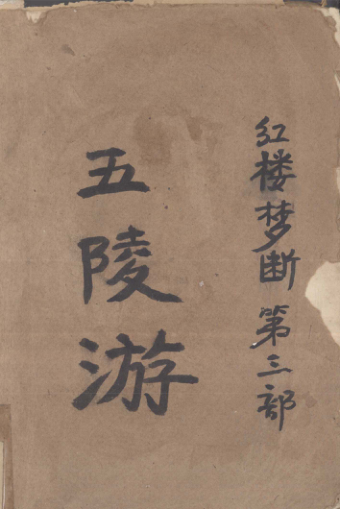 红楼梦断 第三部
五陵游